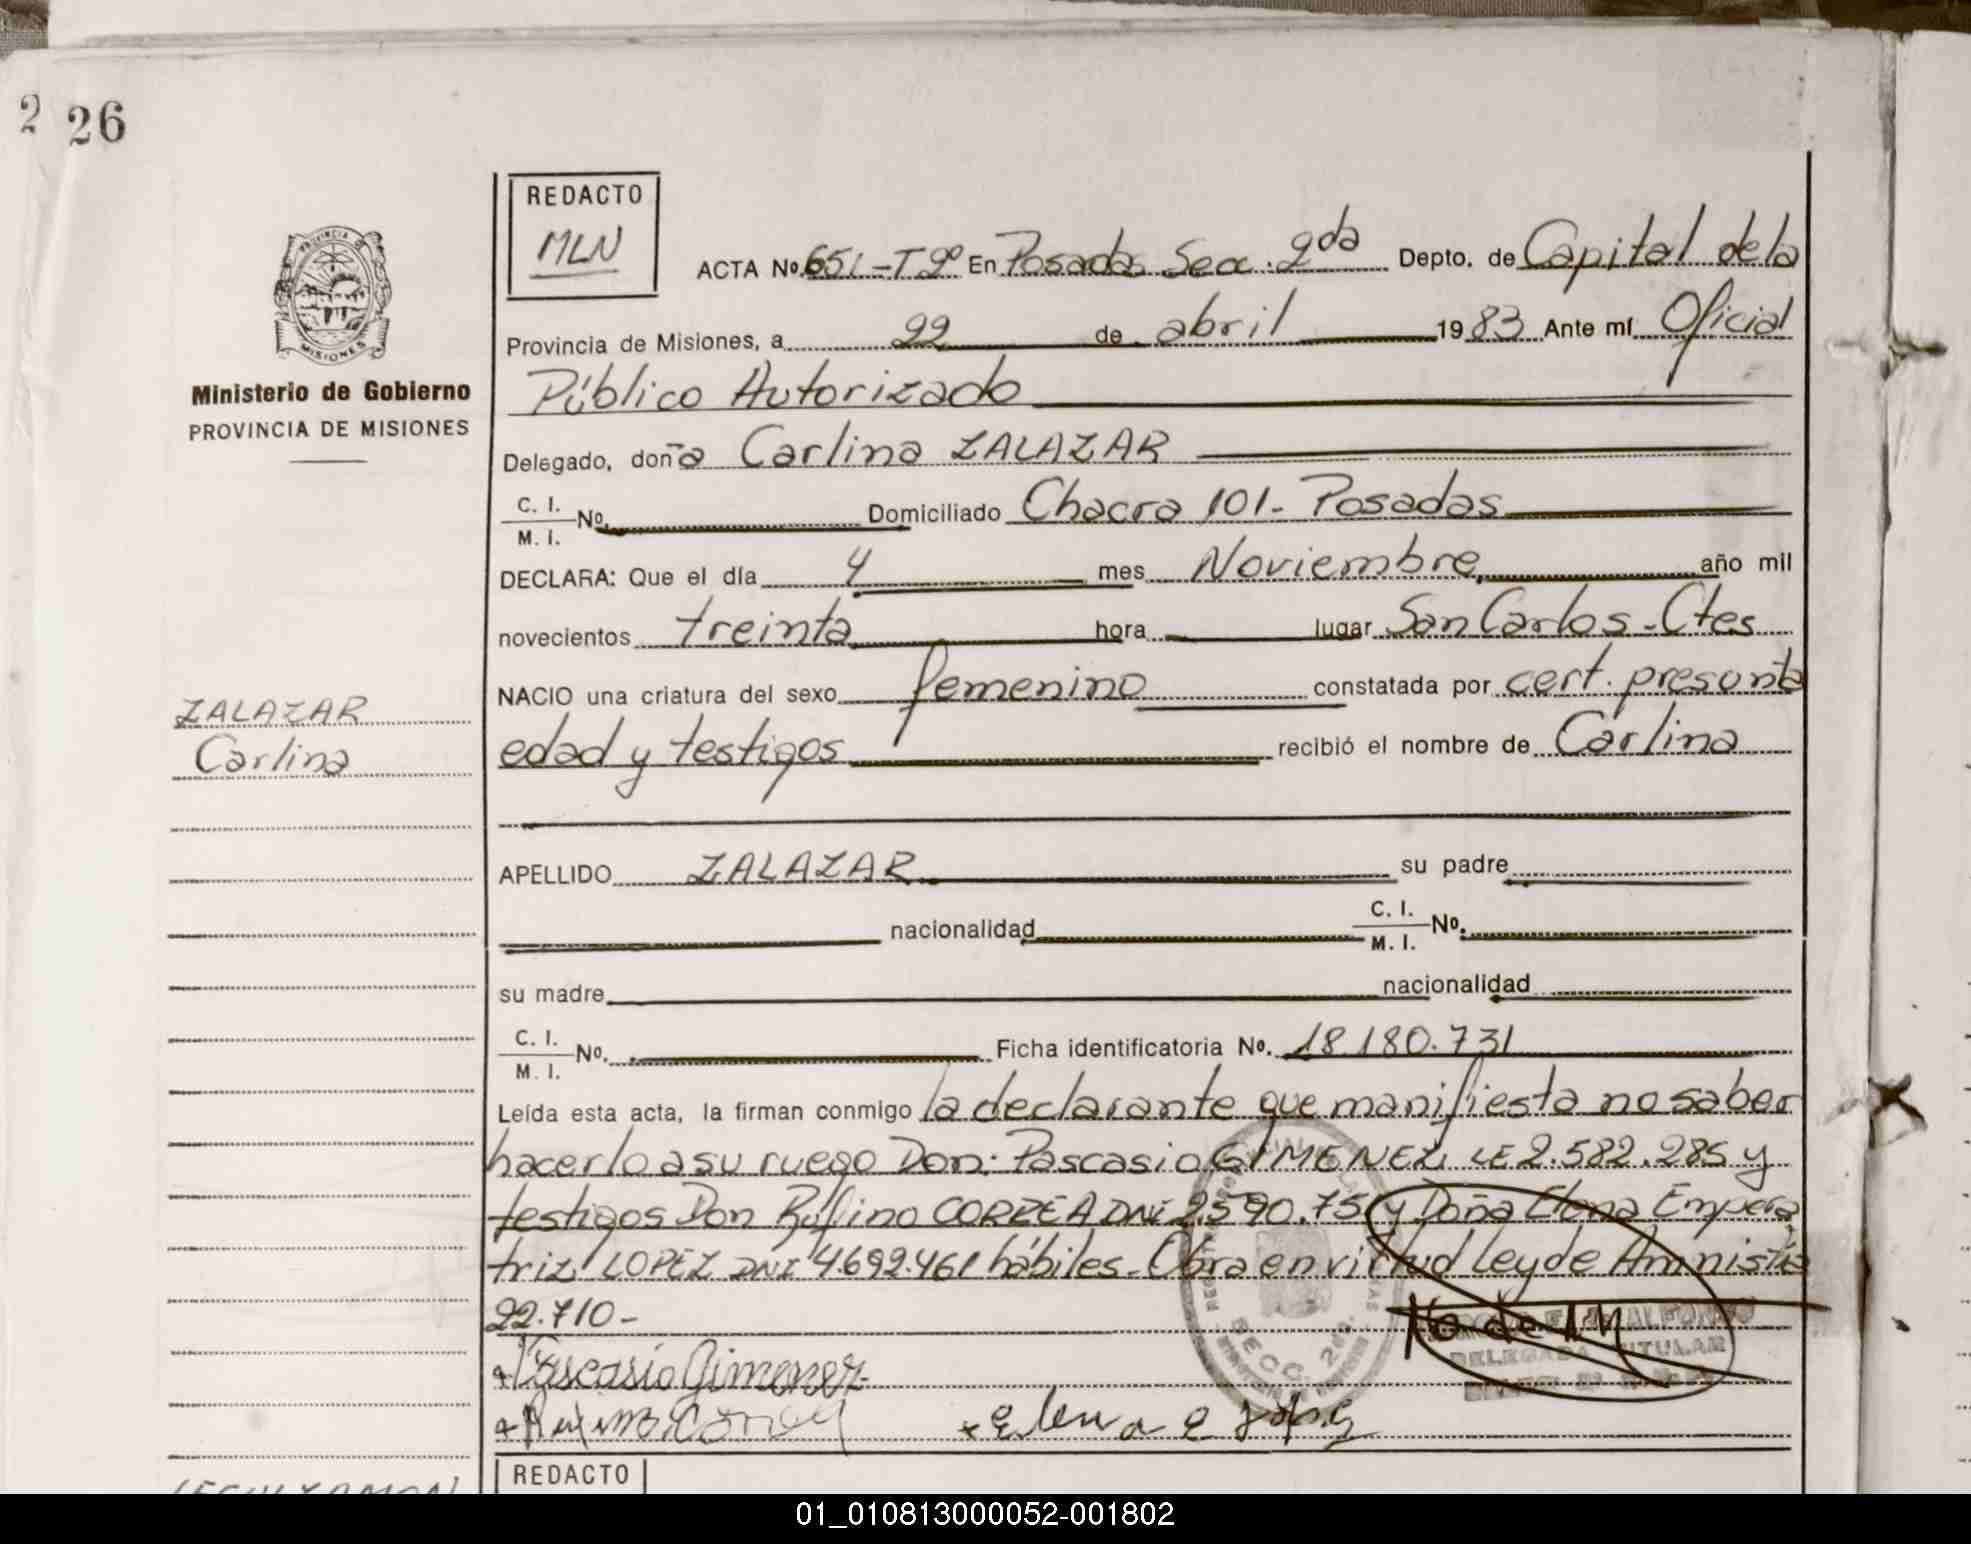 2 26
REDACTO
MLN
PROVINCIA DE
MISIONES
Ministerio de Gobierno
PROVINCIA DE MISIONES
ACTA Nº 651-Tº 2º En Posadas Secc. 2da Depto. de Capital de la
Provincia de Misiones, a 22 de abril 1983 Ante mí Oficial
Público Autorizado
Delegado, doña Carlina ZALAZAR
C. I.
M. I. Nº Domiciliado Chacra 101- Posadas
DECLARA: Que el día 4 mes Noviembre año mil
novecientos treinta hora lugar San Carlos-Ctes
NACIO una criatura del sexo femenino constatada por cert. presunta
edad y testigos recibió el nombre de Carlina
ZALAZAR
Carlina
APELLIDO ZALAZAR su padre
nacionalidad C. I.
M. I. Nº.
su madre nacionalidad
C. I.
M. I. Nº. Ficha identificatoria Nº. 18.180.731
Leída esta acta, la firman conmigo la declarante que manifiesta no saber
hacerlo a su ruego Don: Pascasio GIMENEZ LE 2.582.285 y
testigos Don Rufino CORREA DNI 2.590.751 y Doña Elena Empera
triz LOPEZ DNI 4.692.461 hábiles- Obra en virtud Ley de Amnistía
22.710-
Pascasio Gimenez
DELEGADA TITULAR
SECC. 2da.
REDACTO
01_010813000052-001802